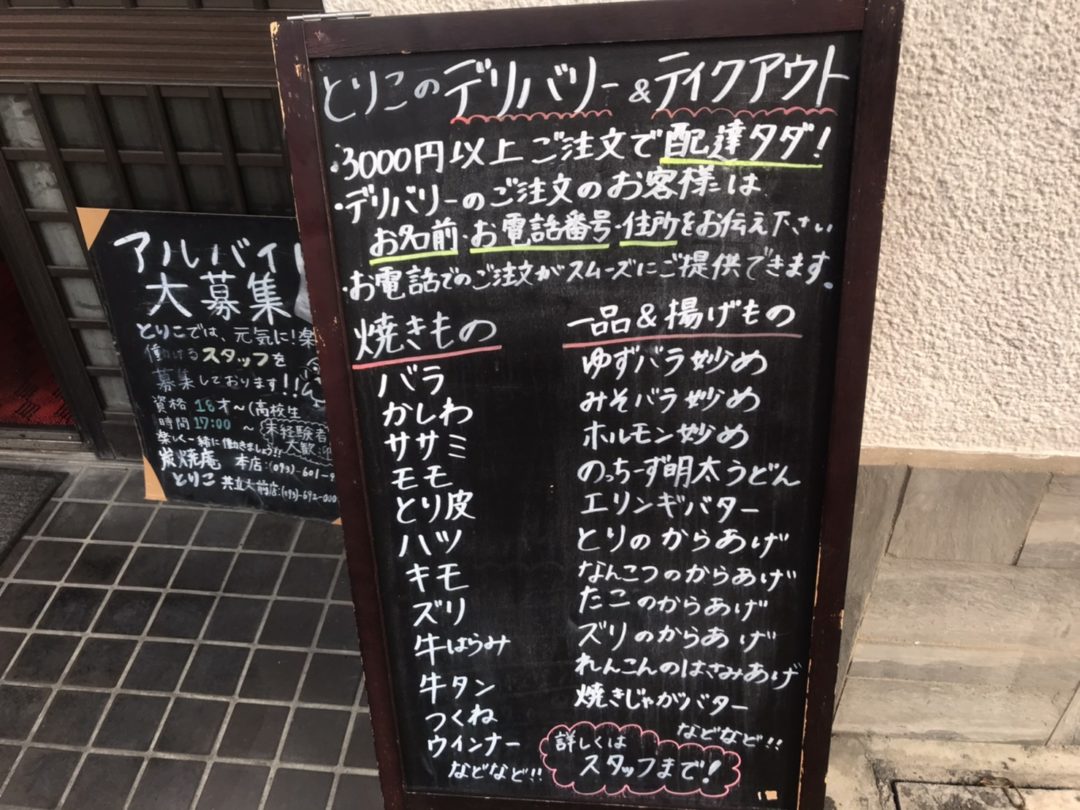 とりこのデリバリー&テイクアウト
・3000円以上ご注文で配達タダ!
・デリバリーのご注文のお客様は
お名前・お電話番号・住所をお伝え下さい
・お電話でのご注文がスムーズにご提供できます。
焼きもの
バラ
かしわ
ササミ
モモ
とり皮
ハツ
キモ
ズリ
牛はらみ
牛タン
つくね
ウインナー
などなど!!
一品&揚げもの
ゆずバラ炒め
みそバラ炒め
ホルモン炒め
のっちーず明太うどん
エリンギバター
とりのからあげ
なんこつのからあげ
たこのからあげ
ズリのからあげ
れんこんのはさみあげ
焼きじゃがバター
などなど!!
詳しくは
スタッフまで!
アルバイト
大募集
とりこでは、元気に!楽
働けるスタッフを
募集しております!!
資格 18才~(高校生
時間 17:00 ~
未経験者
大歓迎
楽しく一緒に働きましょう!!
炭焼庵 本店:(093)-601-
とりこ 共立大前店:(093)-692-000